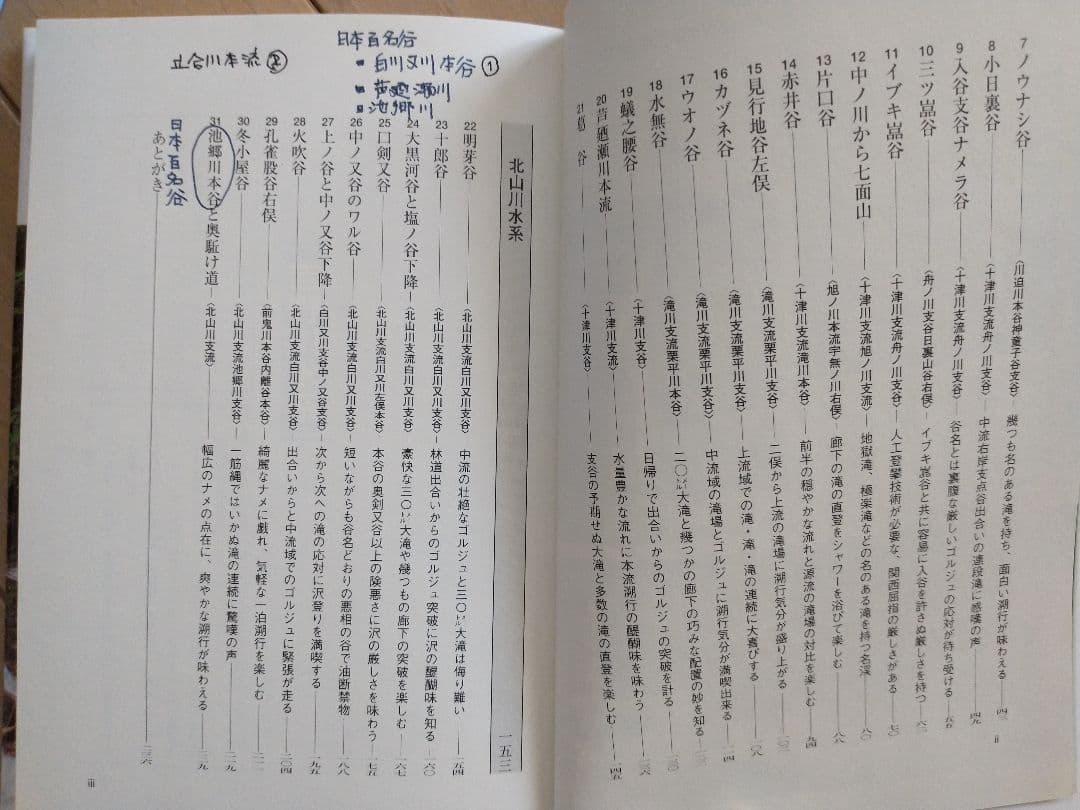 7 ノウナシ谷 〈川迫川本谷神童子谷支谷〉 幾つも名のある滝を持ち、面白い溯行が味わえる 四三
8 小日裏谷 〈十津川支流舟ノ川支谷〉 中流右岸支点谷出合いの連段滝に感嘆の声 四九
9 入谷支谷ナメラ谷 〈十津川支流舟ノ川支谷〉 谷名とは裏腹な厳しいゴルジュの応対が待ち受ける 五五
10 三ツ嵓谷 〈舟ノ川支谷日裏山谷右俣〉 イブキ嵓谷と共に容易に入谷を許さぬ厳しさを持つ 六二
11 イブキ嵓谷 〈十津川支流舟ノ川支谷〉 人工登攀技術が必要な、関西屈指の厳しさがある 七〇
12 中ノ川から七面山 〈十津川支流旭ノ川支流〉 地獄滝、極楽滝などの名のある滝を持つ名渓 八〇
13 片口谷 〈旭ノ川本流宇無ノ川右俣〉 廊下の滝の直登をシャワーを浴びて楽しむ 八八
14 赤井谷 〈十津川支流滝川本谷〉 前半の穏やかな流れと源流の滝場の対比を楽しむ 九四
15 見行地谷左俣 〈滝川支流栗平川支谷〉 二俣から上流の滝場に溯行気分が盛り上がる
16 カヅネ谷 〈滝川支流栗平川支谷〉 上流域での滝・滝・滝の連続に大喜びする 一〇八
17 ウオノ谷 〈滝川支流栗平川支谷〉 中流域の滝場とゴルジュに溯行気分が満喫出来る
18 水無谷 〈滝川支流栗平川本谷〉 二〇㍍大滝と幾つかの廊下の巧みな配置の妙を知る
19 蟻之腰谷 〈十津川支谷〉 日帰りで出合いからのゴルジュの突破を計る
20 芦廼瀬川本流 〈十津川支流〉 水量豊かな流れに本流溯行の醍醐味を味わう
21 葛谷 〈十津川支谷〉 支谷の予期せぬ大滝と多数の滝の直登を楽しむ 一四五
ii
日本百名谷
■ 白川又川本谷 ①
■ 芦廼瀬川
■ 池郷川
立合川本流 ②
北山川水系 一五三
22 明芽谷 〈北山川支流白川又川支谷〉 中流の壮絶なゴルジュと三〇㍍大滝は侮り難い 一五四
23 十郎谷 〈北山川支流白川又川支谷〉 林道出合いからのゴルジュ突破に沢の醍醐味を知る 一六〇
24 大黒河谷と塩ノ谷下降 〈北山川支流白川又川支谷〉 豪快な三〇㍍大滝や幾つもの廊下の突破を楽しむ 一六七
25 口剣又谷 〈北山川支流白川又川左俣本谷〉 本谷の奥剣又谷以上の険悪さに沢の厳しさを味わう 一七五
26 中ノ又谷のワル谷 〈北山川支流白川又川支谷〉 短いながらも谷名どおりの悪相の谷で油断禁物 一八八
27 上ノ谷と中ノ又谷下降 〈白川又川支谷中ノ又谷支谷〉 次から次への滝の応対に沢登りを満喫する 一九五
28 火吹谷 〈北山川支流白川又川支谷〉 出合いからと中流域でのゴルジュに緊張が走る 二〇四
29 孔雀股谷右俣 〈前鬼川本谷内離谷本谷〉 綺麗なナメに戯れ、気軽な一泊溯行を楽しむ
30 冬小屋谷 〈北山川支流池郷川支谷〉 一筋縄ではいかぬ滝の連続に驚嘆の声
31 池郷川本谷と奥駈け道 〈北山川支流〉 幅広のナメの点在に、爽やかな溯行が味わえる
日本百名谷
あとがき 二三六
iii